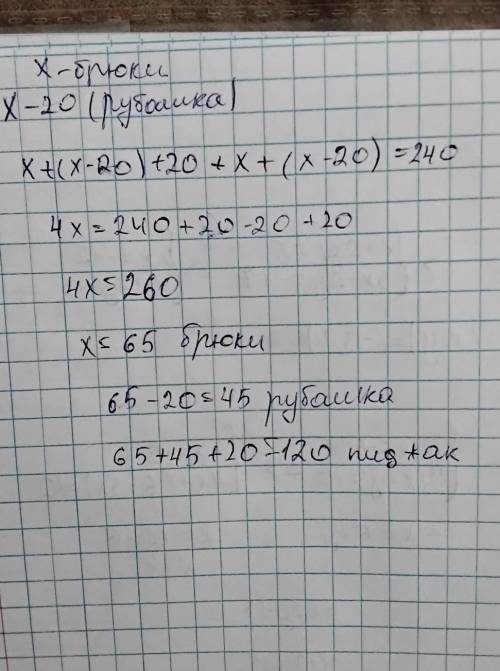 x - брюки
x - 20 (рубашка)
x + (x - 20) + 20 + x + (x - 20) = 240
4x = 240 + 20 - 20 + 20
4x = 260
x = 65 брюки
65 - 20 = 45 рубашка
65 + 45 + 20 = 120 пиджак